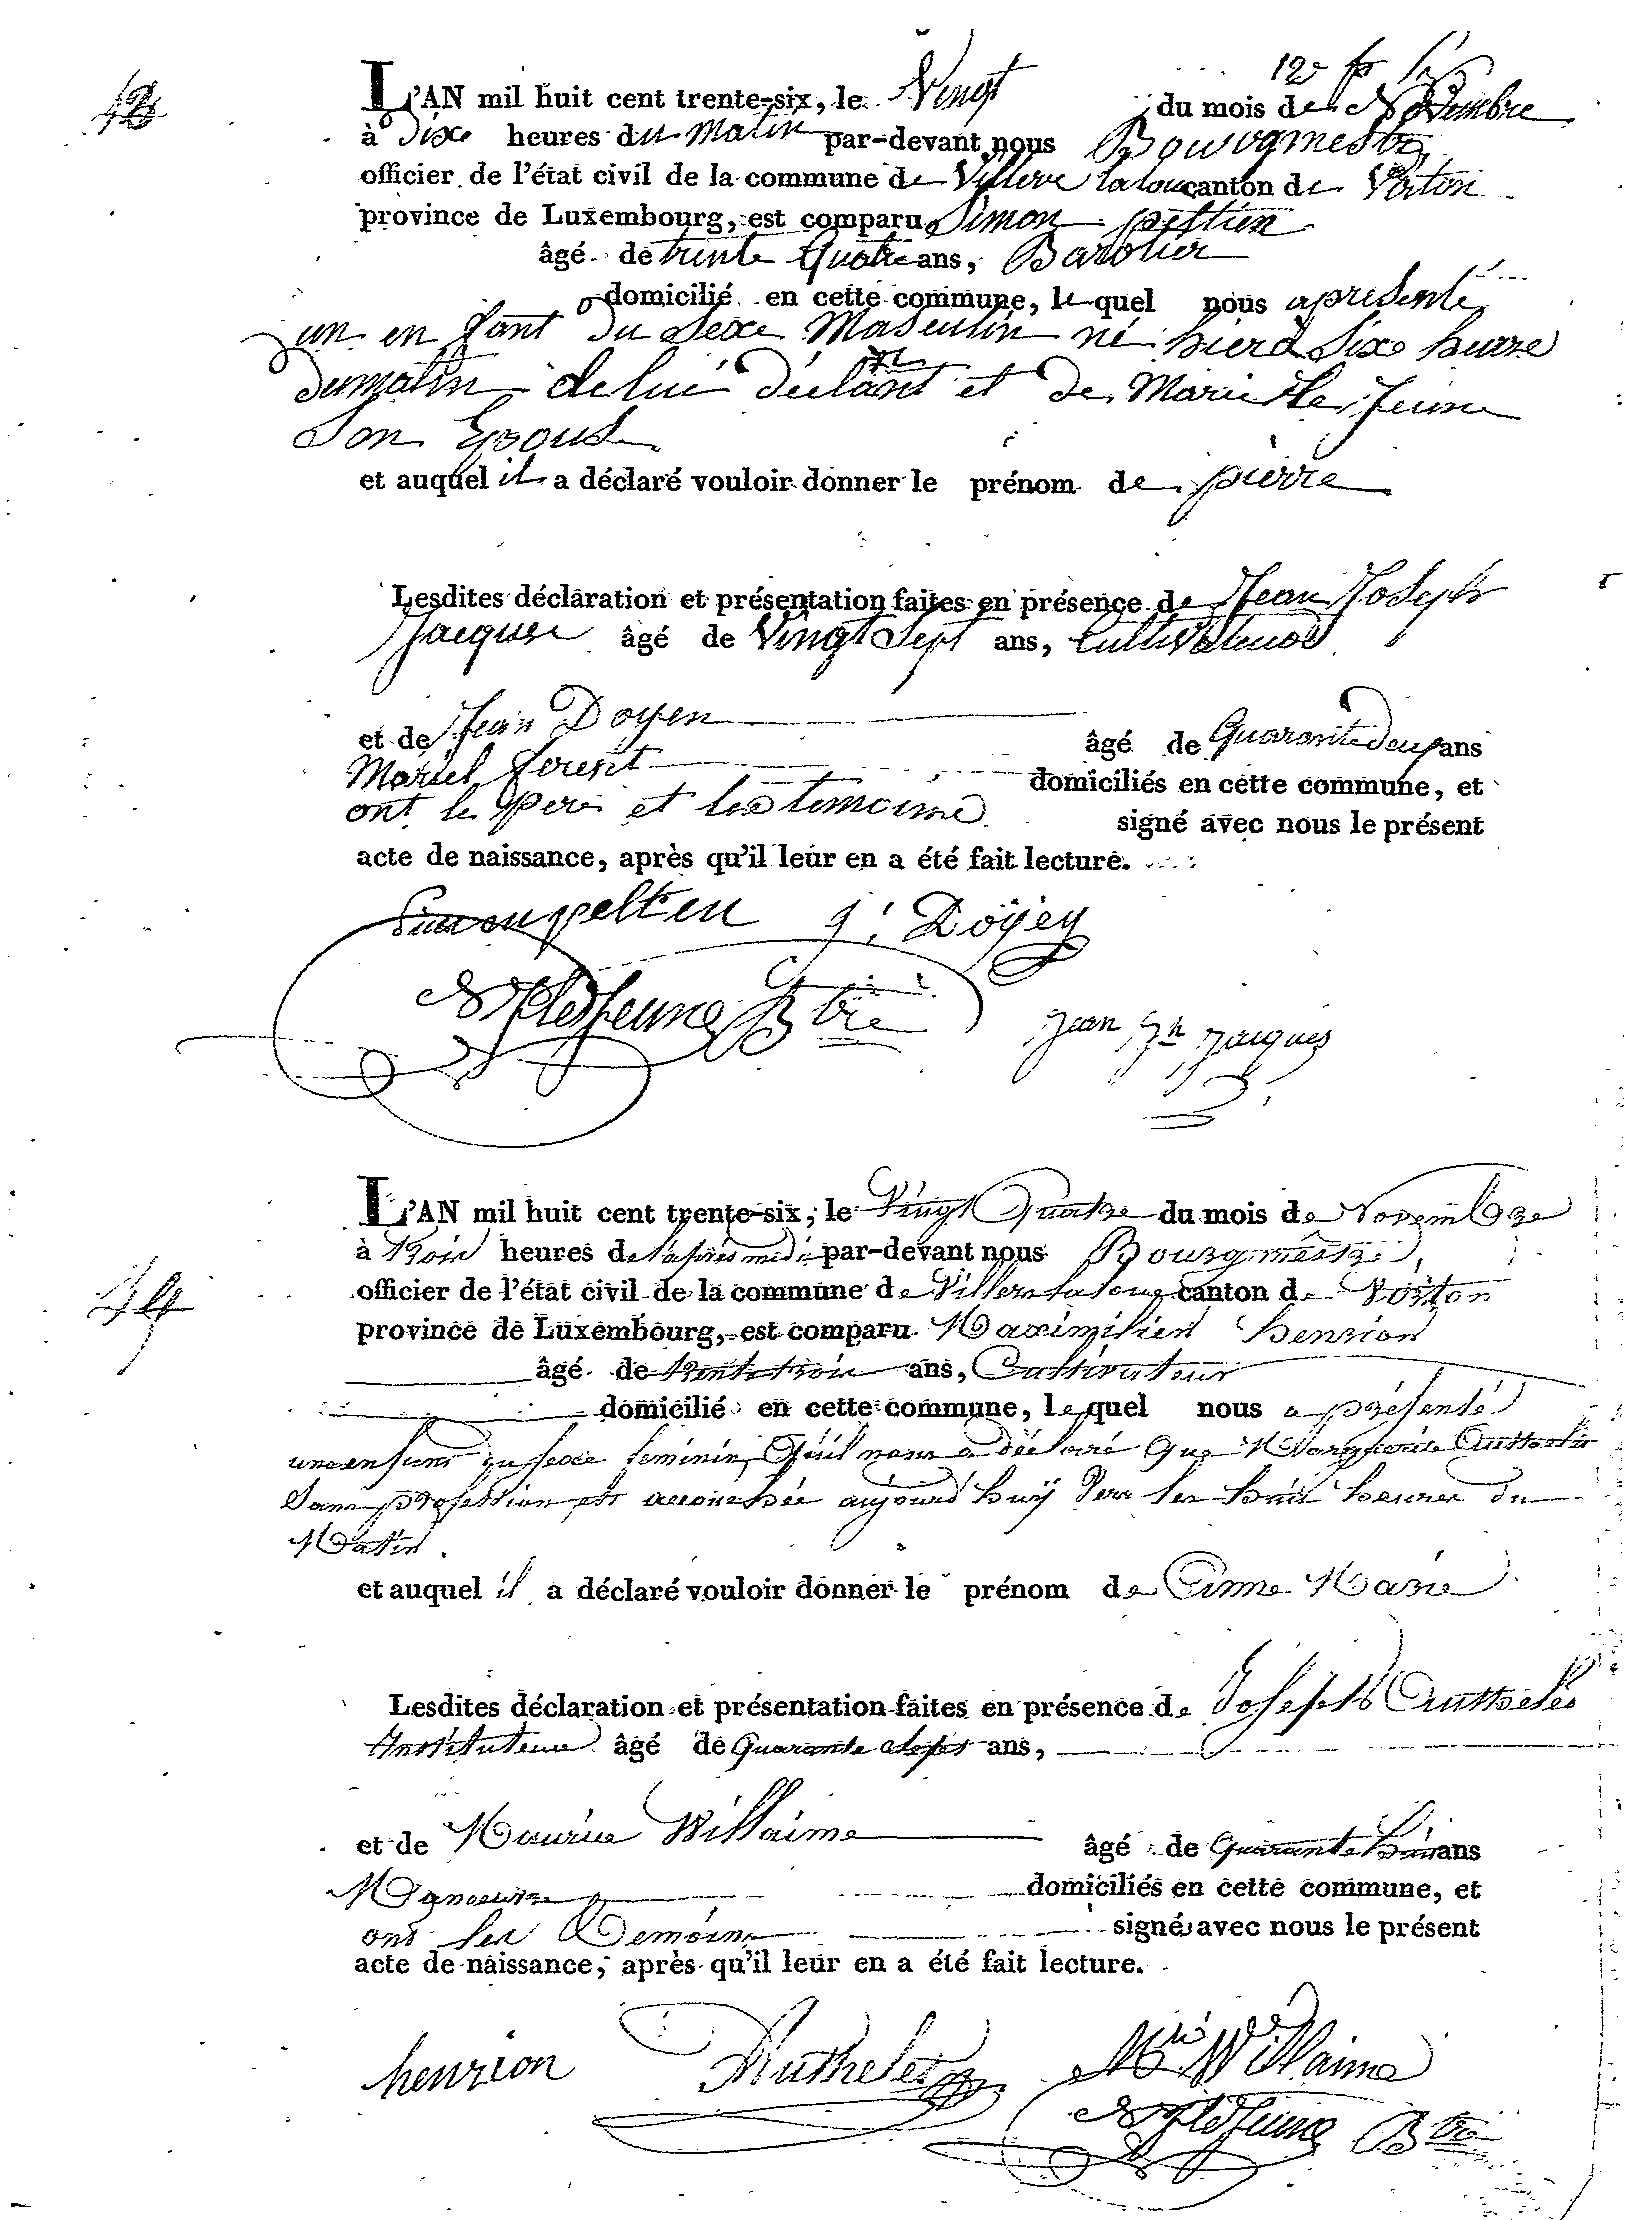 L'AN mil huit cent trente-six, le Vingt du mois de Novembre
à dixe heures du matin par-devant nous Bourgmestre
officier de l'état civil de la commune de Villers laloue canton de Virton
province de Luxembourg, est comparu Simon peltien
âgé de trente Quatre ans,
domicilié en cette commune, le quel nous a presenté
un en fant du Sexe Masculin né hier a Sixe heure
dumatin de lui déclarant et de Marie Le Jeune
Son Epouse
et auquel il a déclaré vouloir donner le prénom de pierre
Lesdites déclaration et présentation faites en présence de Jean Joseph
Jacques âgé de Vingt Sept ans, Cultivateur
et de Jean Doyen âgé de Quarante deux ans
domiciliés en cette commune, et
ont le pere et les temoins signé avec nous le présent
acte de naissance, après qu'il leur en a été fait lecture.
Simon peltien J: Doÿen
LeJeune Btre Jean Jh Jacques
L'AN mil huit cent trente-six, le Vingt Quatre du mois de Novembre
à trois heures de l'après midi par-devant nous Bourgmestre
officier de l'état civil de la commune de Villers laloue canton de Virton
province de Luxembourg, est comparu Maximilien henrion
âgé de trente trois ans, Cultivateur
domicilié en cette commune, le quel nous a présenté
un enfant du sexe feminin, Qu'il nous a déclaré Que Marguerite Authelet
Sans profession est accouchée aujourd'huÿ Vers les huit heures du
Matin.
et auquel il a déclaré vouloir donner le prénom de Anne Marie
Lesdites déclaration et présentation faites en présence de Joseph Authelet
Instituteur âgé de Quarante Sept ans,
et de Maurice Willaime âgé de Quarante huit ans
Manoeuvre domiciliés en cette commune, et
ont les Temoins signé avec nous le présent
acte de naissance, après qu'il leur en a été fait lecture.
henrion Authelet Mce Willaime
LeJeune Btre